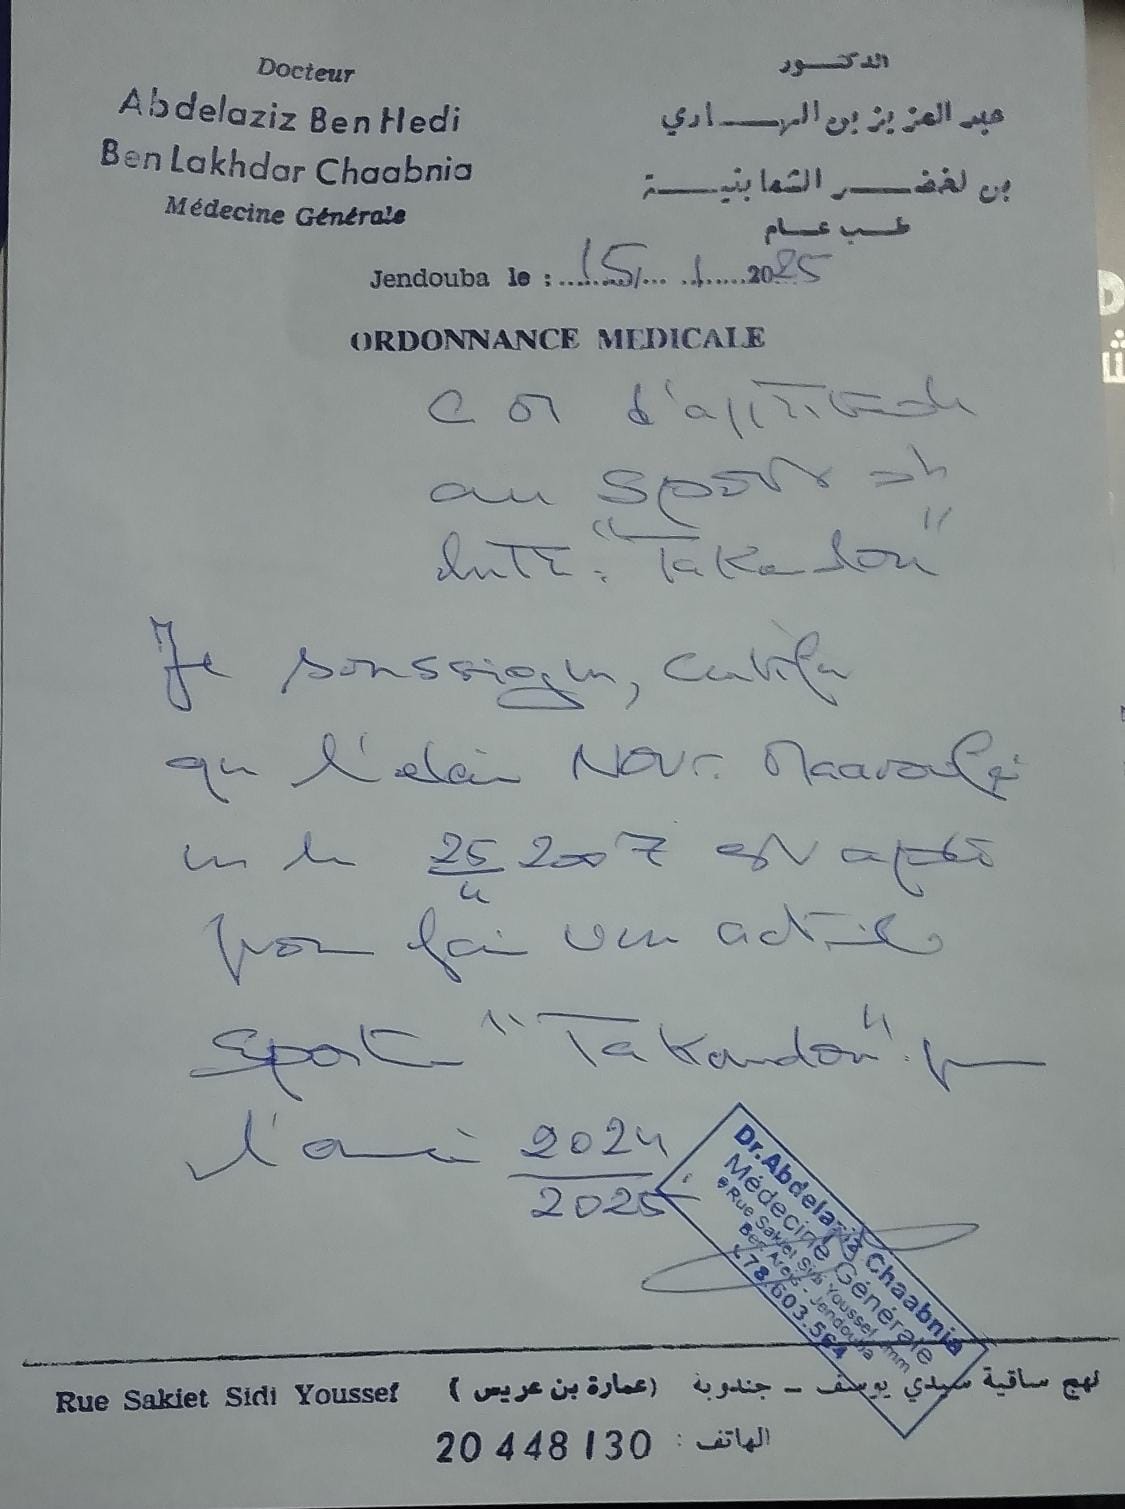 Docteur
Abdelaziz Ben Hedi
Ben Lakhdar Chaabnia
Médecine Générale
الدكتور
عبد العزيز بن الهادي
بن لخضر الشعابنية
طب عام
Jendouba le : 15/ 1 2025
ORDONNANCE MEDICALE
d'aptitude
au sport
"Takandou"
Je soussigné, certifie
que l'élève Nour Maaroufi
né le 25/4 2007 est apte
pour faire une activité
sportive "Takandou" pour
l'année 2024/2025
Dr.Abdelaziz Chaabnia
Médecine Générale
Rue Sakiet Sidi Youssef Imm
Ben Arejs - Jendouba
78.603.564
Rue Sakiet Sidi Youssef
نهج ساقية سيدي يوسف - جندوبة (عمارة بن عريس)
الهاتف : 20 448 130